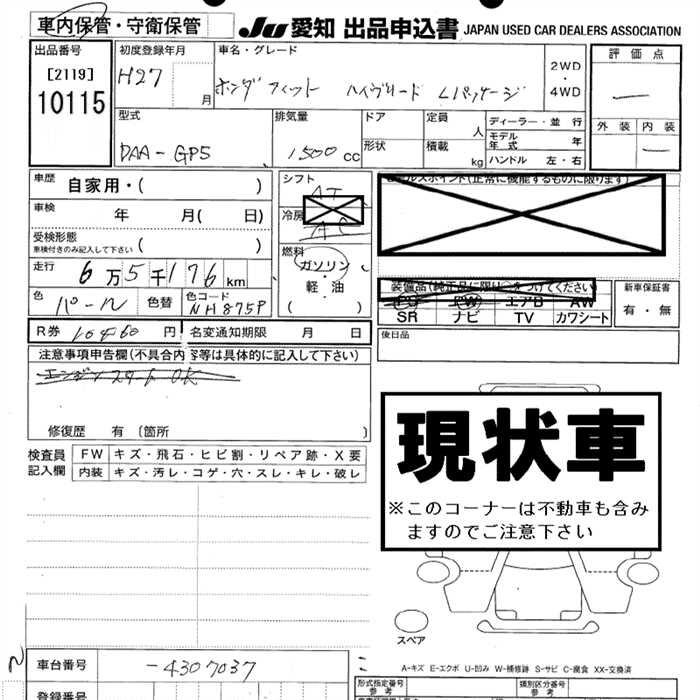 車内保管・守衛保管
JU 愛知 出品申込書 JAPAN USED CAR DEALERS ASSOCIATION
出品番号
[2119]
10115
初度登録年月
H27
月
車名・グレード
ホンダ フィット ハイブリード Lパッケージ
2WD
・
4WD
評価点
外装 内装
型式
DAA-GP5
排気量
1500cc
ドア
形状
定員
人
積載
kg
ディーラー・並行
モデル年式 年
ハンドル 左・右
車歴
自家用・( )
車検
年 月( 日)
受検形態
車検付きのみ記入して下さい ( )
走行
6万5千176km
色
パール
色替
色コード
NH875P
R券 10460円
名変通知期限 月 日
シフト
AT
冷房
AC
燃料
ガソリン・
軽・油
( )
(正常に機能するものに限ります)
装備品(純正品に限り○をつけてください)
PS PW エアB AW
SR ナビ TV カワシート
新車保証書
有・無
後日品
注意事項申告欄(不具合内容等は具体的に記入して下さい)
エンジンスタートOK
修復歴 有 〔箇所 〕
検査員記入欄
FW キズ・飛石・ヒビ割・リペア跡・X要
内装 キズ・汚レ・コゲ・穴・スレ・キレ・破レ
現状車
※このコーナーは不動車も含み
ますのでご注意下さい
スペア
A-キズ E-エクボ U-凹み W-補修跡 S-サビ C-腐食 XX-交換済
車台番号
-4307037
登録番号
形式指定番号
参考
類別区分番号
参考